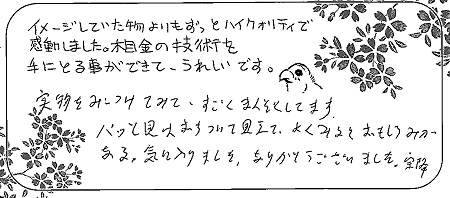 イメージしていた物よりもずっとハイクオリティで
感動しました。木目金の技術を
手にとる事ができて、うれしいです。
実物をみにつけてみて、すごくまんぞくしてます
パッと見は おちついて見えて、よくみると おもしろみが
ある。気に入りました。ありがとうございました。